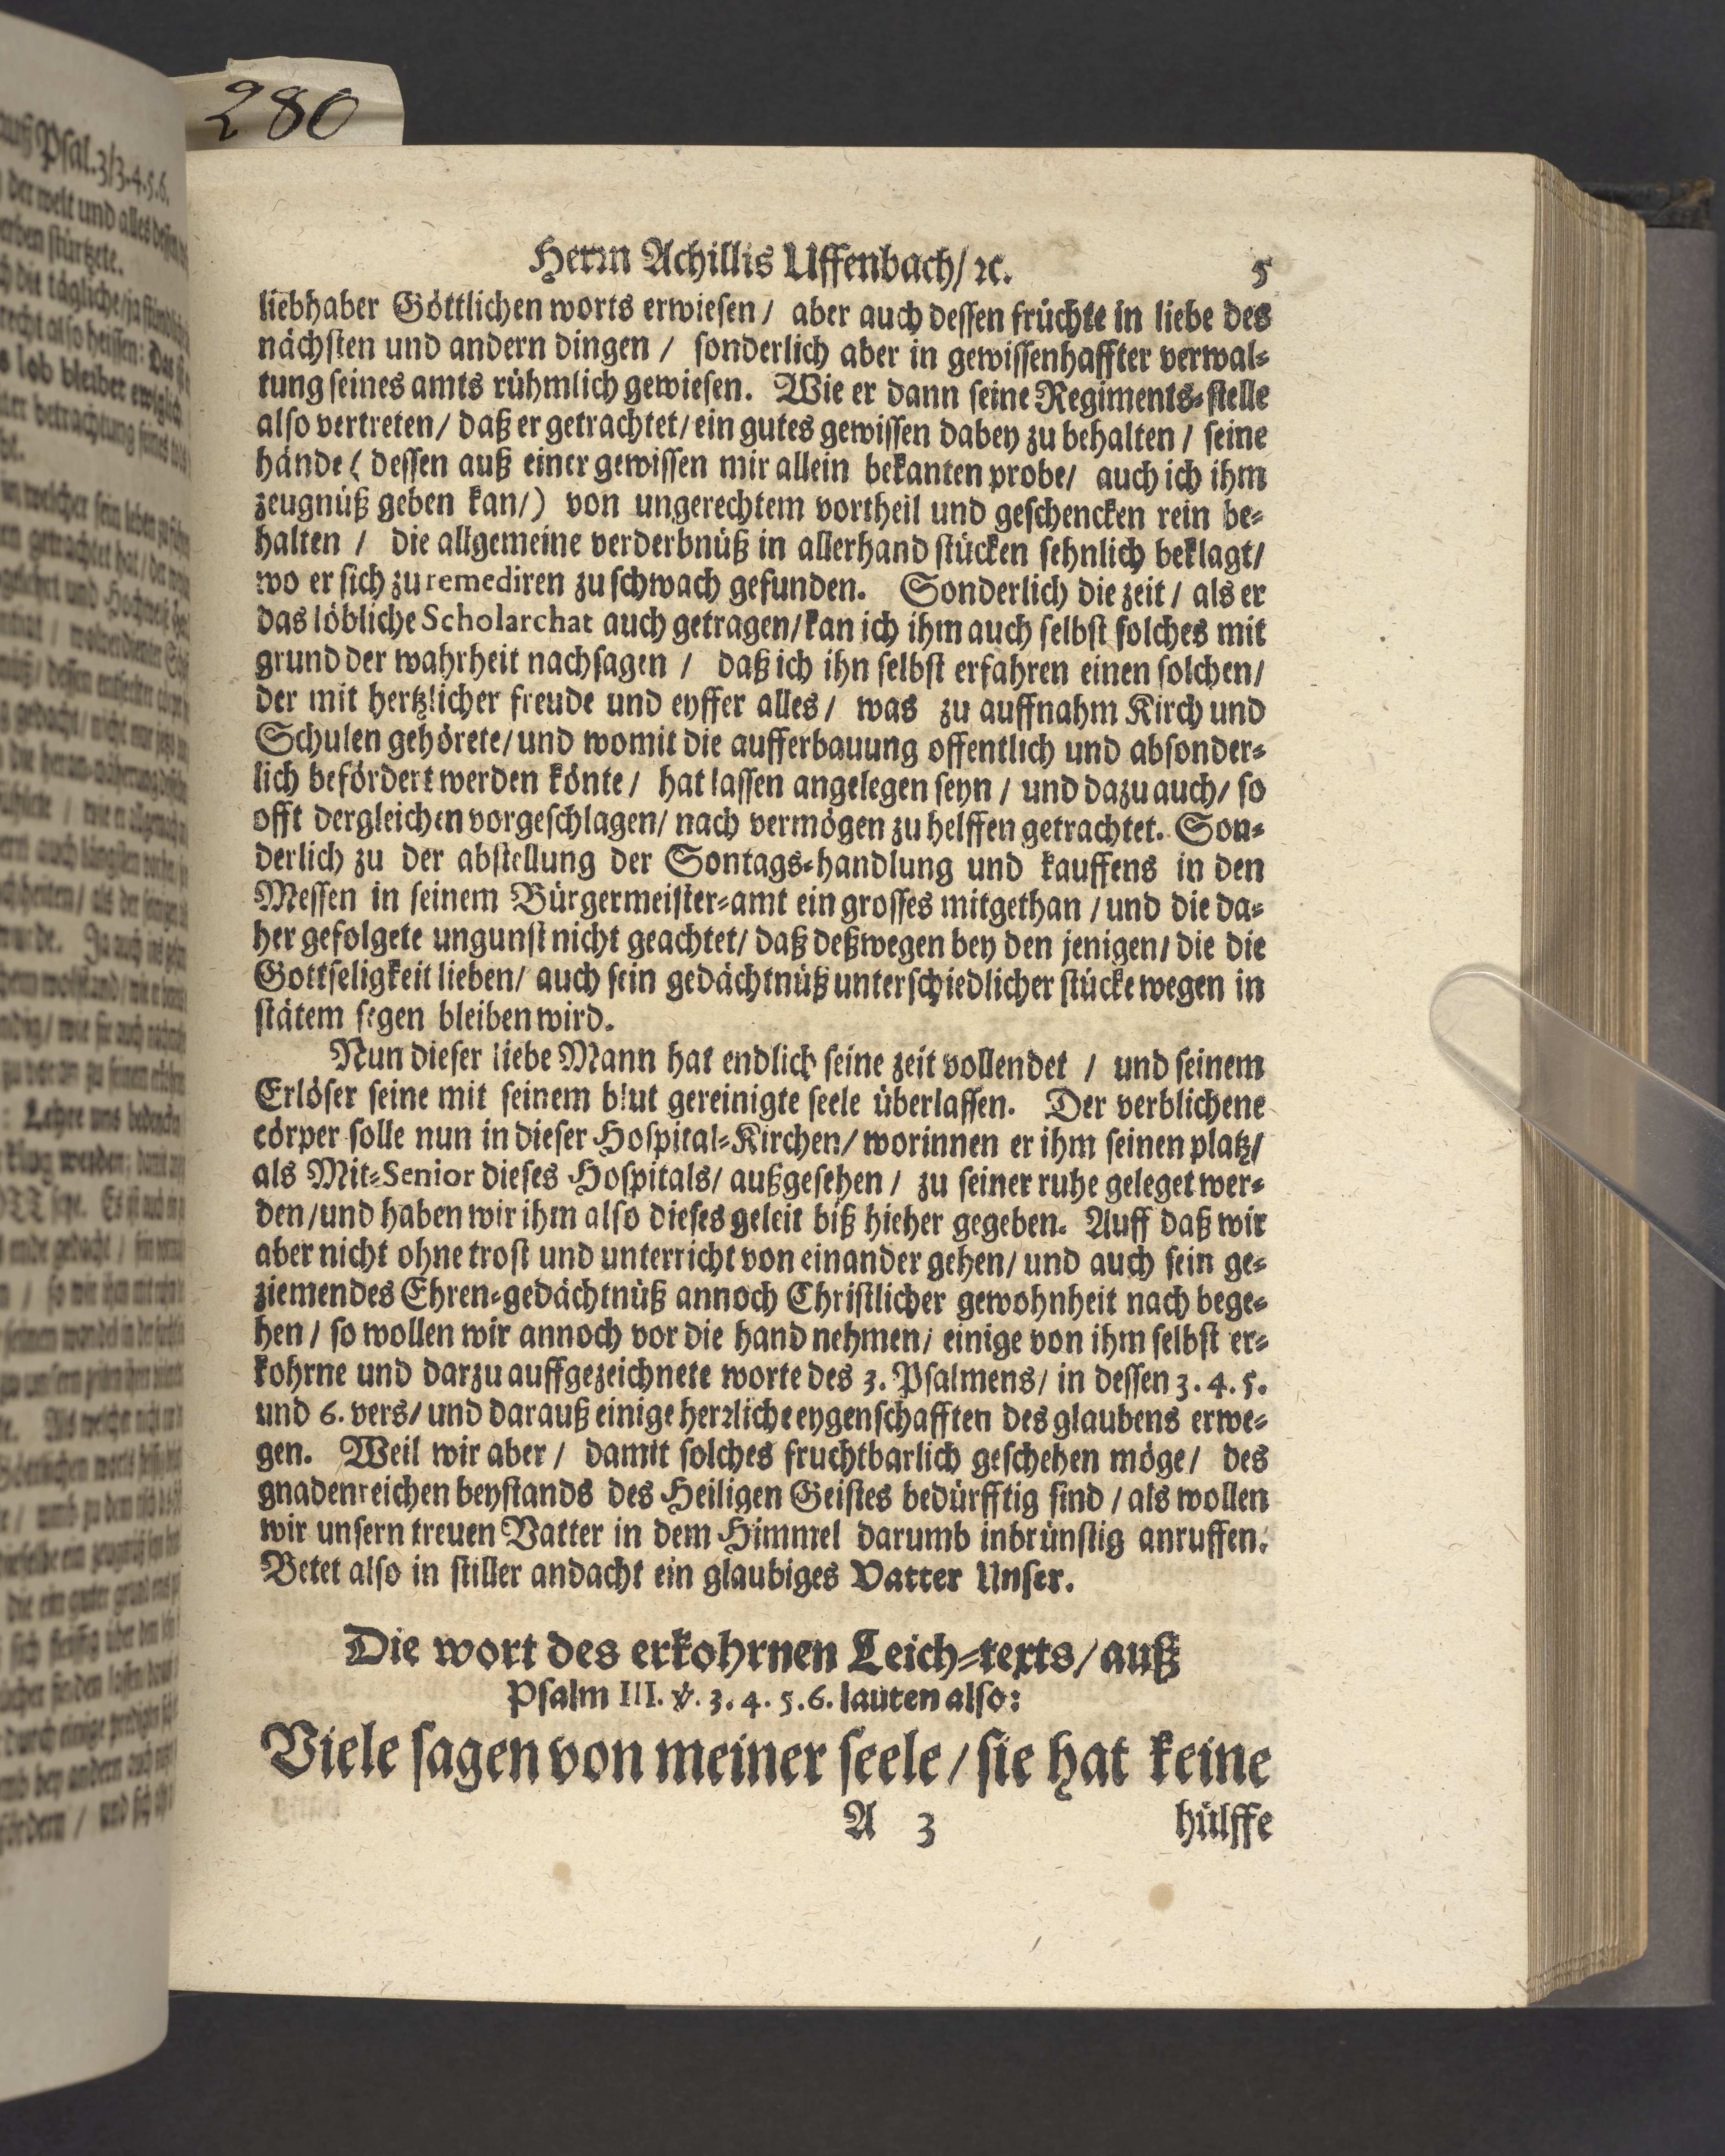 280
Herrn Achillis Uffenbach/ ꝛc. 5
liebhaber Göttlichen worts erwiesen / aber auch dessen früchte in liebe des
nächsten und andern dingen / sonderlich aber in gewissenhaffter verwal-
tung seines amts rühmlich gewiesen. Wie er dann seine Regiments-stelle
also vertreten/ daß er getrachtet/ ein gutes gewissen dabey zu behalten / seine
hände ( dessen auß einer gewissen mir allein bekanten probe/ auch ich ihm
zeugnüß geben kan/) von ungerechtem vortheil und geschencken rein be-
halten / die allgemeine verderbnüß in allerhand stücken sehnlich beklagt/
wo er sich zu remediren zu schwach gefunden. Sonderlich die zeit / als er
das löbliche Scholarchat auch getragen/ kan ich ihm auch selbst solches mit
grund der wahrheit nachsagen / daß ich ihn selbst erfahren einen solchen/
der mit hertzlicher freude und eyffer alles / was zu auffnahm Kirch und
Schulen gehörete/ und womit die aufferbauung offentlich und absonder-
lich befördert werden könte / hat lassen angelegen seyn / und dazu auch/ so
offt dergleichen vorgeschlagen/ nach vermögen zu helffen getrachtet. Son-
derlich zu der abstellung der Sontags-handlung und kauffens in den
Messen in seinem Bürgermeister-amt ein grosses mitgethan / und die da-
her gefolgete ungunst nicht geachtet/ daß deßwegen bey den jenigen/ die die
Gottseligkeit lieben/ auch sein gedächtnüß unterschiedlicher stücke wegen in
stätem segen bleiben wird.
Nun dieser liebe Mann hat endlich seine zeit vollendet / und seinem
Erlöser seine mit seinem blut gereinigte seele überlassen. Der verblichene
cörper solle nun in dieser Hospital-Kirchen/ worinnen er ihm seinen platz/
als Mit-Senior dieses Hospitals/ außgesehen / zu seiner ruhe geleget wer-
den/ und haben wir ihm also dieses geleit biß hieher gegeben. Auff daß wir
aber nicht ohne trost und unterricht von einander gehen/ und auch sein ge-
ziemendes Ehren-gedächtnüß annoch Christlicher gewohnheit nach bege-
hen / so wollen wir annoch vor die hand nehmen/ einige von ihm selbst er-
kohrne und darzu auffgezeichnete worte des 3. Psalmens/ in dessen 3. 4. 5.
und 6. vers/ und darauß einige herrliche eygenschafften des glaubens erwe-
gen. Weil wir aber / damit solches fruchtbarlich geschehen möge/ des
gnadenreichen beystands des Heiligen Geistes bedürfftig sind / als wollen
wir unsern treuen Vatter in dem Himmel darumb inbrünstig anruffen.
Betet also in stiller andacht ein glaubiges Vatter Unser.
Die wort des erkohrnen Leich-texts/ auß
Psalm III. ꝟ. 3. 4. 5. 6. lauten also:
Viele sagen von meiner seele / sie hat keine
A 3 hülffe